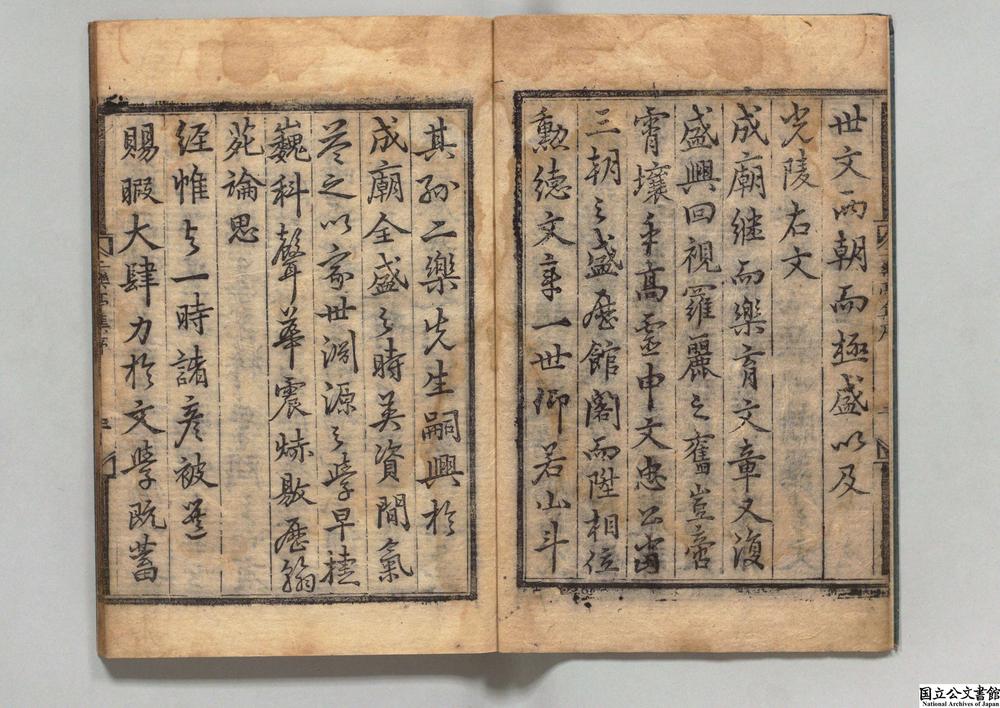 世文兩朝而極盛以及
光陵右文
成廟継而樂育文章又復
盛興回視羅麗之舊豈啻
霄壤乎高靈申文忠公當
三朝之盛歷館閣而陞相位
勳德文章一世仰若山斗
其孫二樂先生嗣興於
成廟全盛之時英資間氣
益之以家世淵源之學早捷
巍科聲華震赫敭歷翰
苑論思
経帷与一時諸彦被選
賜暇大肆力於文學既蓄
二樂亭集序
国立公文書館
National Archives of Japan